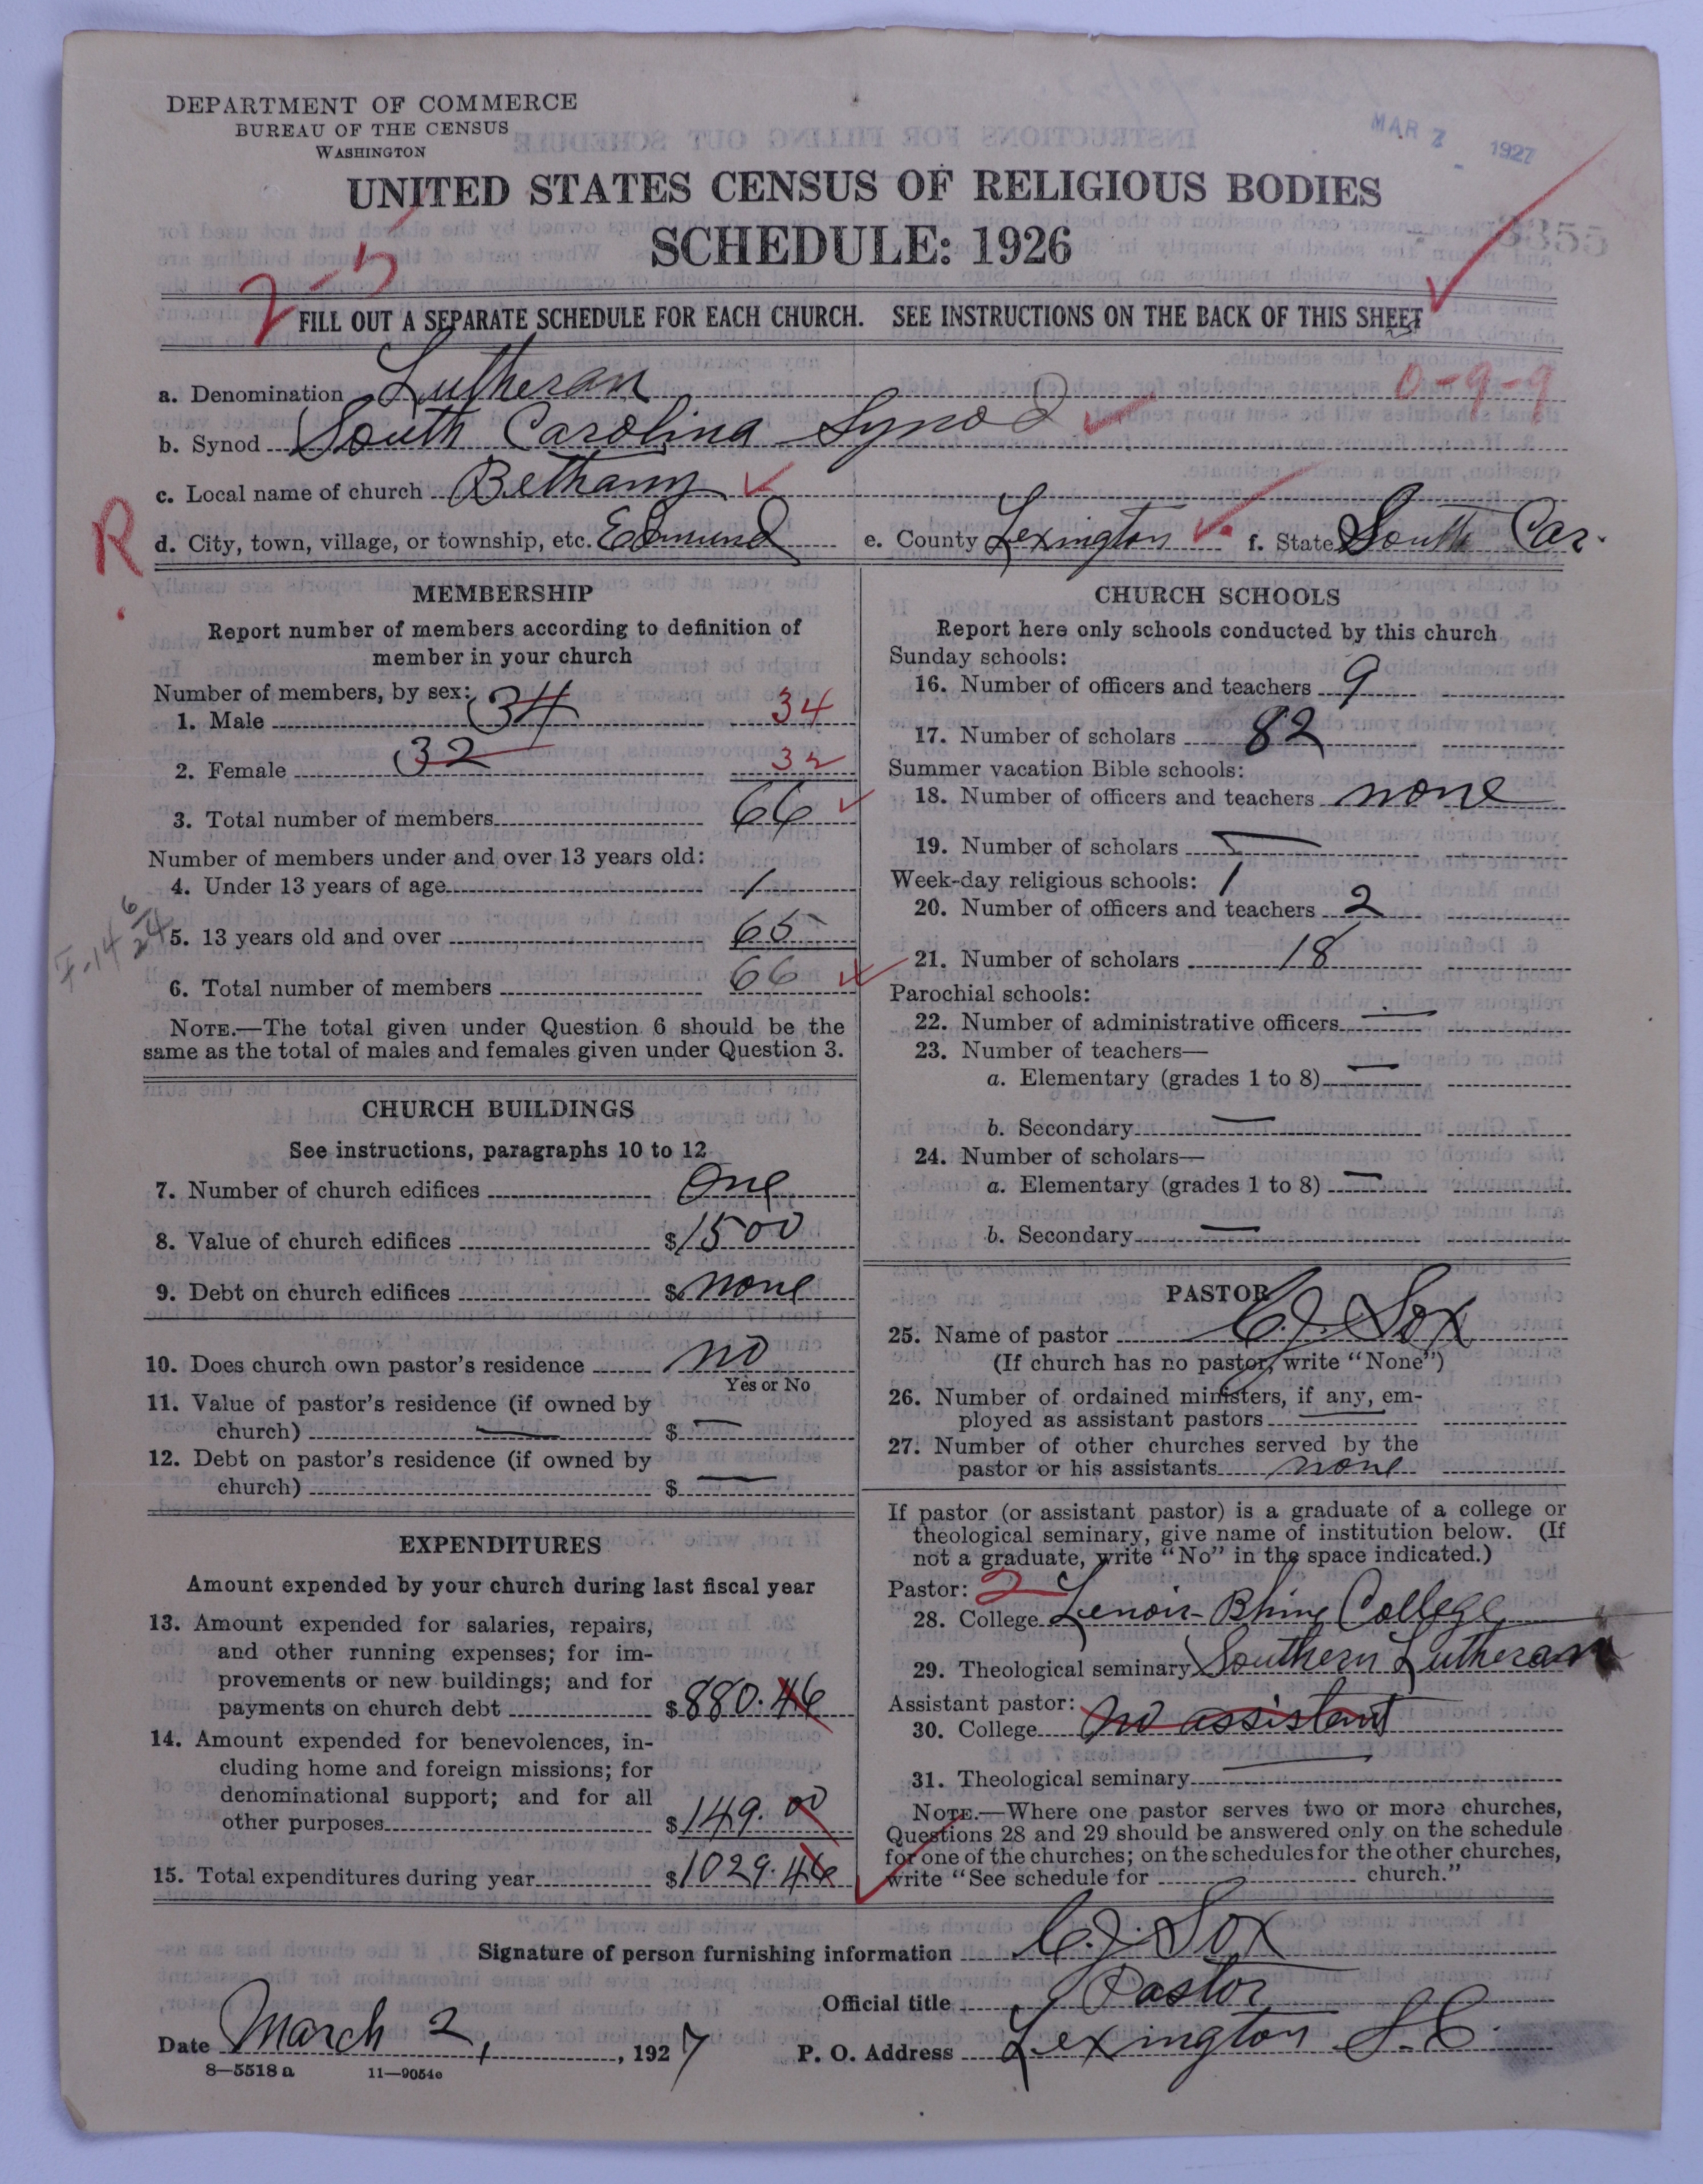 DEPARTMENT OF COMMERCE
BUREAU OF THE CENSUS
WASHINGTON
MAR 7 1927
UNITED STATES CENSUS OF RELIGIOUS BODIES
SCHEDULE: 1926
3355
2-5
FILL OUT A SEPARATE SCHEDULE FOR EACH CHURCH. SEE INSTRUCTIONS ON THE BACK OF THIS SHEET
a. Denomination Lutheran 0-9-9
b. Synod South Carolina Synod
c. Local name of church Bethany
R.
d. City, town, village, or township, etc. Edmund e. County Lexington f. State South Car.
MEMBERSHIP
Report number of members according to definition of
member in your church
Number of members, by sex:
1. Male 34 34
2. Female 32 32
3. Total number of members 66
Number of members under and over 13 years old:
4. Under 13 years of age 1
5. 13 years old and over 65
6. Total number of members 66
NOTE.—The total given under Question 6 should be the
same as the total of males and females given under Question 3.
CHURCH BUILDINGS
See instructions, paragraphs 10 to 12
7. Number of church edifices One
8. Value of church edifices $1500
9. Debt on church edifices $none
10. Does church own pastor's residence no
Yes or No
11. Value of pastor's residence (if owned by
church) — $ —
12. Debt on pastor's residence (if owned by
church) $ —
EXPENDITURES
Amount expended by your church during last fiscal year
13. Amount expended for salaries, repairs,
and other running expenses; for im-
provements or new buildings; and for
payments on church debt $880.46
14. Amount expended for benevolences, in-
cluding home and foreign missions; for
denominational support; and for all
other purposes $149.00
15. Total expenditures during year $1029.46
CHURCH SCHOOLS
Report here only schools conducted by this church
Sunday schools:
16. Number of officers and teachers 9
17. Number of scholars 82
Summer vacation Bible schools:
18. Number of officers and teachers none
19. Number of scholars —
Week-day religious schools: 1
20. Number of officers and teachers 2
21. Number of scholars 18
Parochial schools:
22. Number of administrative officers —
23. Number of teachers—
a. Elementary (grades 1 to 8) —
b. Secondary —
24. Number of scholars—
a. Elementary (grades 1 to 8) —
b. Secondary —
PASTOR
25. Name of pastor C. J. Sox
(If church has no pastor, write "None")
26. Number of ordained ministers, if any, em-
ployed as assistant pastors —
27. Number of other churches served by the
pastor or his assistants none
If pastor (or assistant pastor) is a graduate of a college or
theological seminary, give name of institution below. (If
not a graduate, write "No" in the space indicated.)
Pastor: 2
28. College Lenoir-Rhine College
29. Theological seminary Southern Lutheran
Assistant pastor:
30. College no assistant
31. Theological seminary —
NOTE.—Where one pastor serves two or more churches,
Questions 28 and 29 should be answered only on the schedule
for one of the churches; on the schedules for the other churches,
write "See schedule for church."
Signature of person furnishing information C. J. Sox
Official title Pastor
Date March 2, 1927 P. O. Address Lexington S.C.
8—5518 a 11—9054c